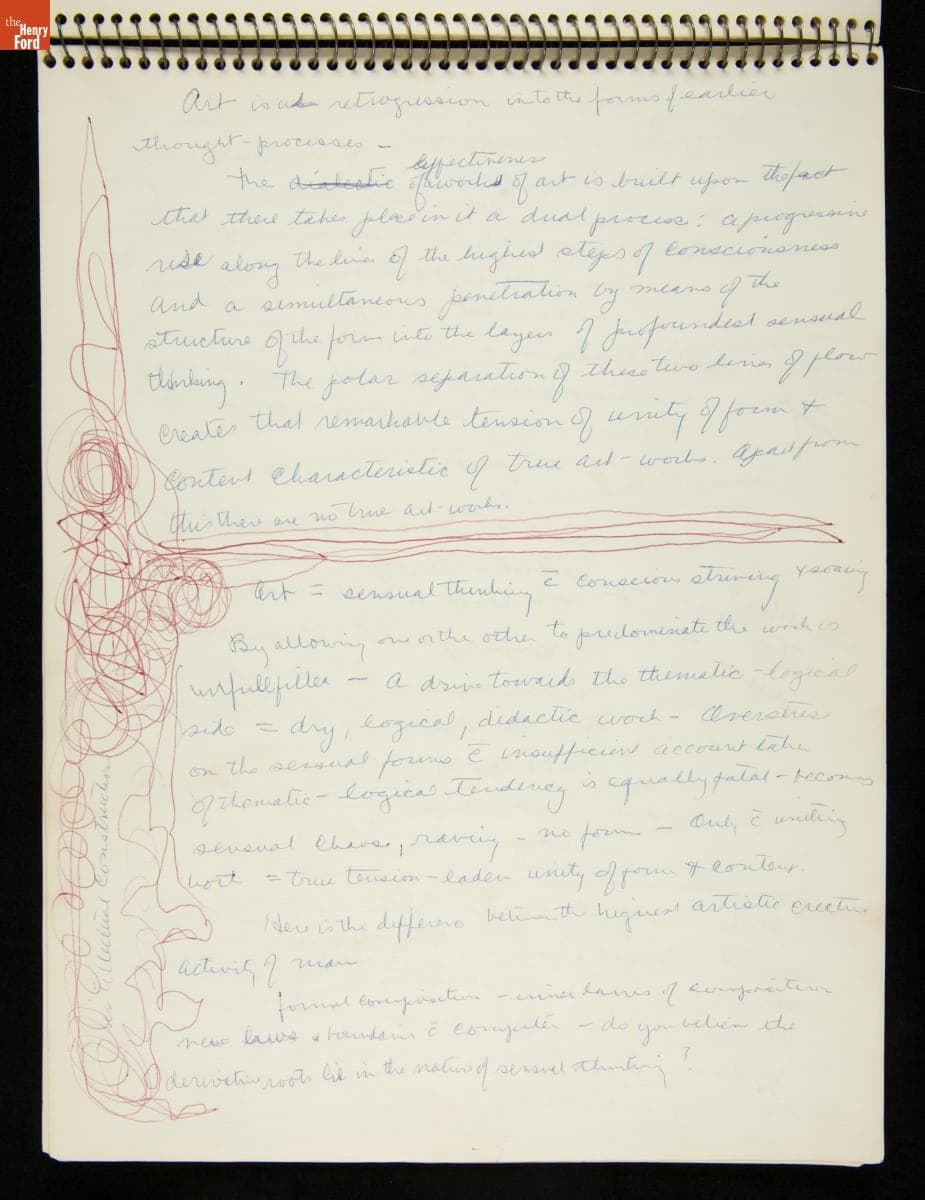 the
Henry
Ford
Art is a retrogression into the forms of earlier
thought-processes –
effectiveness
The dialectic of a work of art is built upon the fact
that there takes place in it a dual process: a progressive
rise along the lines of the highest steps of consciousness
and a simultaneous penetration by means of the
structure of the form into the layers of profoundest sensual
thinking. The polar separation of these two lines of flow
creates that remarkable tension of unity of form &
content characteristic of true art-works. Apart from
this there are no true art-works.
Art = sensual thinking c̄ conscious striving & soaring
By allowing one or the other to predominate the work is
unfullfilled – A drive towards the thematic-logical
side = dry, logical, didactic work – Overstress
on the sensual forms c̄ insufficient account taken
of thematic-logical tendency is equally fatal – becomes
sensual chaos, raving – no form – Only c̄ uniting
both = true tension-laden unity of form & content.
Here is the difference between the highest artistic creative
activity of man
formal composition – inner laws of composition
new laws & boundaries c̄ computer – do you believe the
derivative roots lie in the nature of sensual thinking?
Intellectual Construction